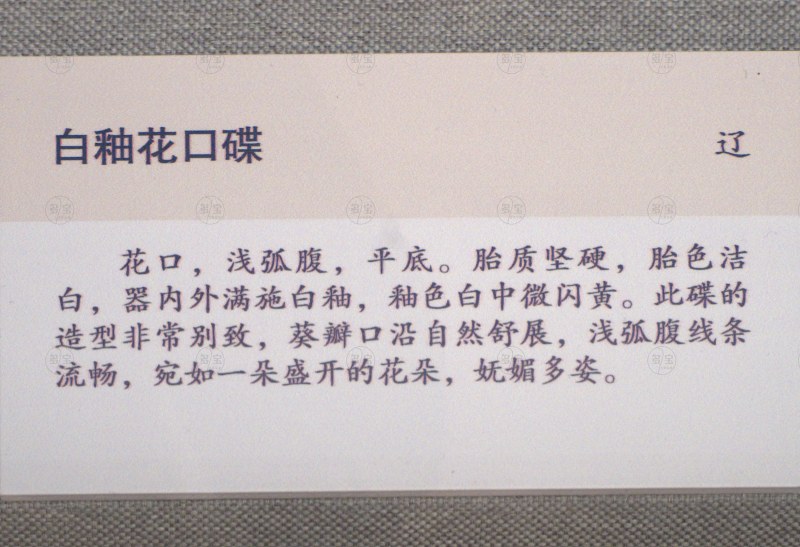 白釉花口碟
辽
花口，浅弧腹，平底。胎质坚硬，胎色洁
白，器内外满施白釉，釉色白中微闪黄。此碟的
造型非常别致，葵瓣口沿自然舒展，浅弧腹线条
流畅，宛如一朵盛开的花朵，妩媚多姿。